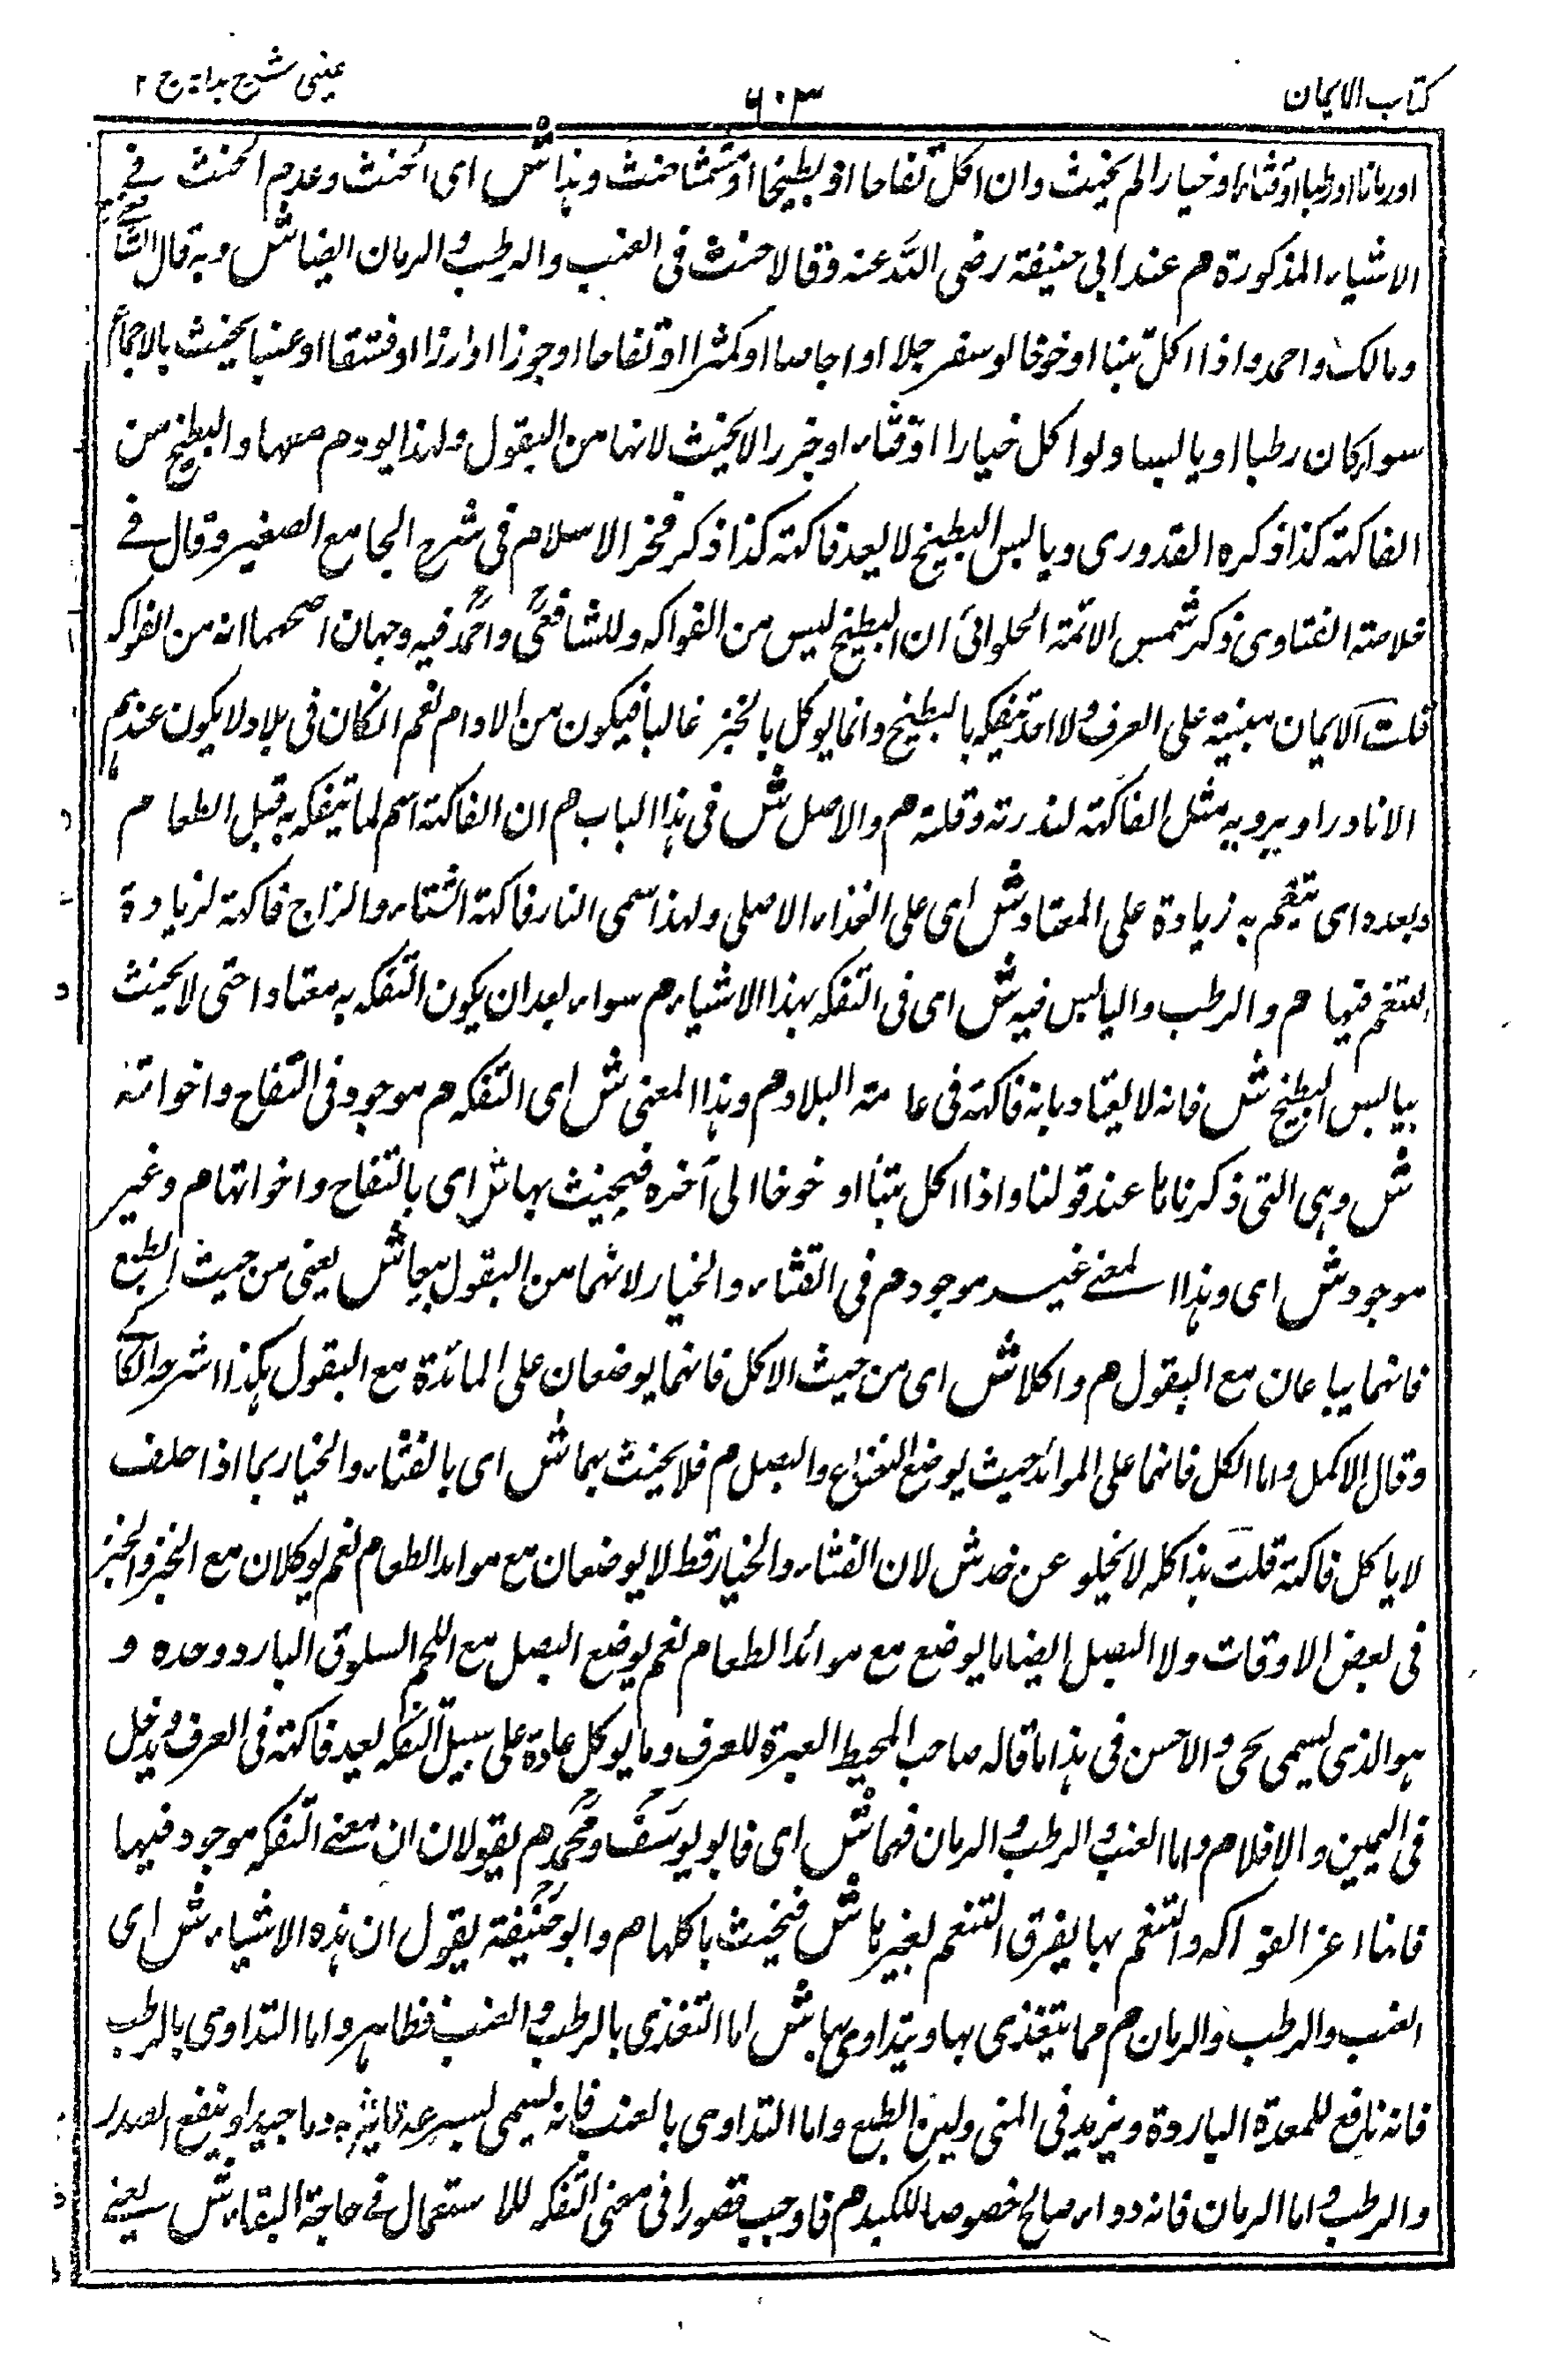 كتاب الايمان
٦٠٣
عينى شرح هداية ج ٢
اورمانا اورطبا اوقثاء اوخيارا لم يحنث وان اكل تفاحا اوبطيخا اومشمشا حنث وهذا ش اى الحنث وعدم الحنث فى
الاشياء المذكورة م عند ابى حنيفة رضى الله عنه وقالا حنث فى العنب والرطب والرمان ايضا ش وبه قال الشافعى
ومالك واحمد واذا اكل تينا اوخوخا اوسفرجلا او اجاصا اوكمثرا اوتفاحا اوجوزا اولوزا اوفستقا اوعنبا يحنث بالاجماع
سواء كان رطبا اويابسا ولو اكل خيارا اوقثاء اوجزرا لايحنث لانها من البقول ولهذا يودم معها والبطيخ من
الفاكهة كذا ذكره القدورى ويابس البطيخ لايعد فاكهة كذا ذكر فخر الاسلام فى شرح الجامع الصغير وقال فى
خلاصة الفتاوى ذكر شمس الائمة الحلوائى ان البطيخ ليس من الفواكه وللشافعى واحمد فيه وجهان اصحهما انه من الفواكه
قلت الايمان مبنية على العرف ولا احد يتفكه بالبطيخ وانما يوكل بالخبز غالبا فيكون من الادام نعم ان كان فى بلاد لايكون عندهم
الا نادرا وبروبه مثل الفاكهة لندرته وقلته م والاصل ش فى هذا الباب م ان الفاكهة اسم لما يتفكه به قبل الطعام م
وبعده اى يتنعم به زيادة على المعتاد ش اى على الغذاء الاصلى ولهذا سمى النار فاكهة الشتاء والمزاح فاكهة لزيادة
التنعم فيها م والرطب واليابس فيه ش اى فى التفكه بهذا الاشياء م سواء بعد ان يكون التفكه به معتادا حتى لايحنث
بيابس البطيخ ش فانه لايعتاد بانه فاكهة فى عامة البلاد م وهذا المعنى ش اى التفكه م موجود فى التفاح واخواته
ش وهى التى ذكرناها عند قولنا واذا اكل تينا او خوخا الى آخره فيحنث بها ش اى بالتفاح واخواتها م وغير
موجود ش اى وهذا المعنى غير موجود م فى القثاء والخيار لانهما من البقول بيعا ش يعنى من حيث الطبع
فانهما يباعان مع البقول م واكلا ش اى من حيث الاكل فانهما يوضعان على المائدة مع البقول هكذا شرحه الكاكى
وقال الاكمل واما الاكل فانهما على الموائد حيث يوضع النعناع والبصل م فلا يحنث بهما ش اى بالقثاء والخيار بما اذا حلف
لاياكل فاكهة قلت هذا كله لايخلو عن خدش لان القثاء والخيار قط لايوضعان مع موائد الطعام نعم يوكلان مع الخبز والجبن
فى بعض الاوقات ولا البصل ايضا مايوضع مع موائد الطعام نعم يوضع البصل مع اللحم السلوق البارد وحده و
هو الذى يسمى يخى والاحسن فى هذا ماقاله صاحب المحيط العبرة للعرف وما يوكل عادة على سبيل التفكه يعد فاكهة فى العرف ويدخل
فى اليمين والا فلا م واما العنب والرطب والرمان فهما ش اى فابو يوسف ومحمد م يقولان ان معنى التفكه موجود فيها
فانها اعز الفواكه والتنعم بها يفرق التنعم بغيرها ش فيحنث باكلها م وابو حنيفة يقول ان هذه الاشياء ش اى
العنب والرطب والرمان م مما يتغذى بها ويتداوى بها ش اما التغذى بالرطب والعنب فظاهر واما التداوى بالرطب
فانه نافع للمعدة الباردة ويزيد فى المنى ولين الطبع واما التداوى بالعنب فانه يسمى بسرعة تاثيره دما جيدا وينفع الصدر
والرطب واما الرمان فانه دواء صالح خصوصا للكبد م فاوجب قصورا فى معنى التفكه للاستعمال فى حاجة البقاء ش يعنى